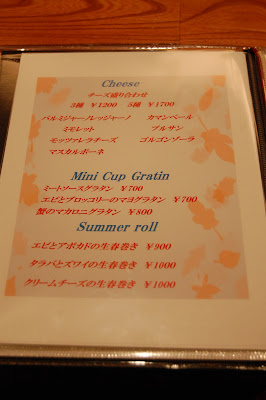 Cheese
チーズ盛り合わせ
3種 ￥1200 5種 ￥1700
パルミジャーノレッジャーノ カマンベール
ミモレット ブルサン
モッツァレラチーズ ゴルゴンゾーラ
マスカルポーネ
Mini Cup Gratin
ミートソースグラタン ￥700
エビとブロッコリーのマヨグラタン ￥700
蟹のマカロニグラタン ￥800
Summer roll
エビとアボカドの生春巻き ￥900
タラバとズワイの生春巻き ￥1000
クリームチーズの生春巻き ￥1000